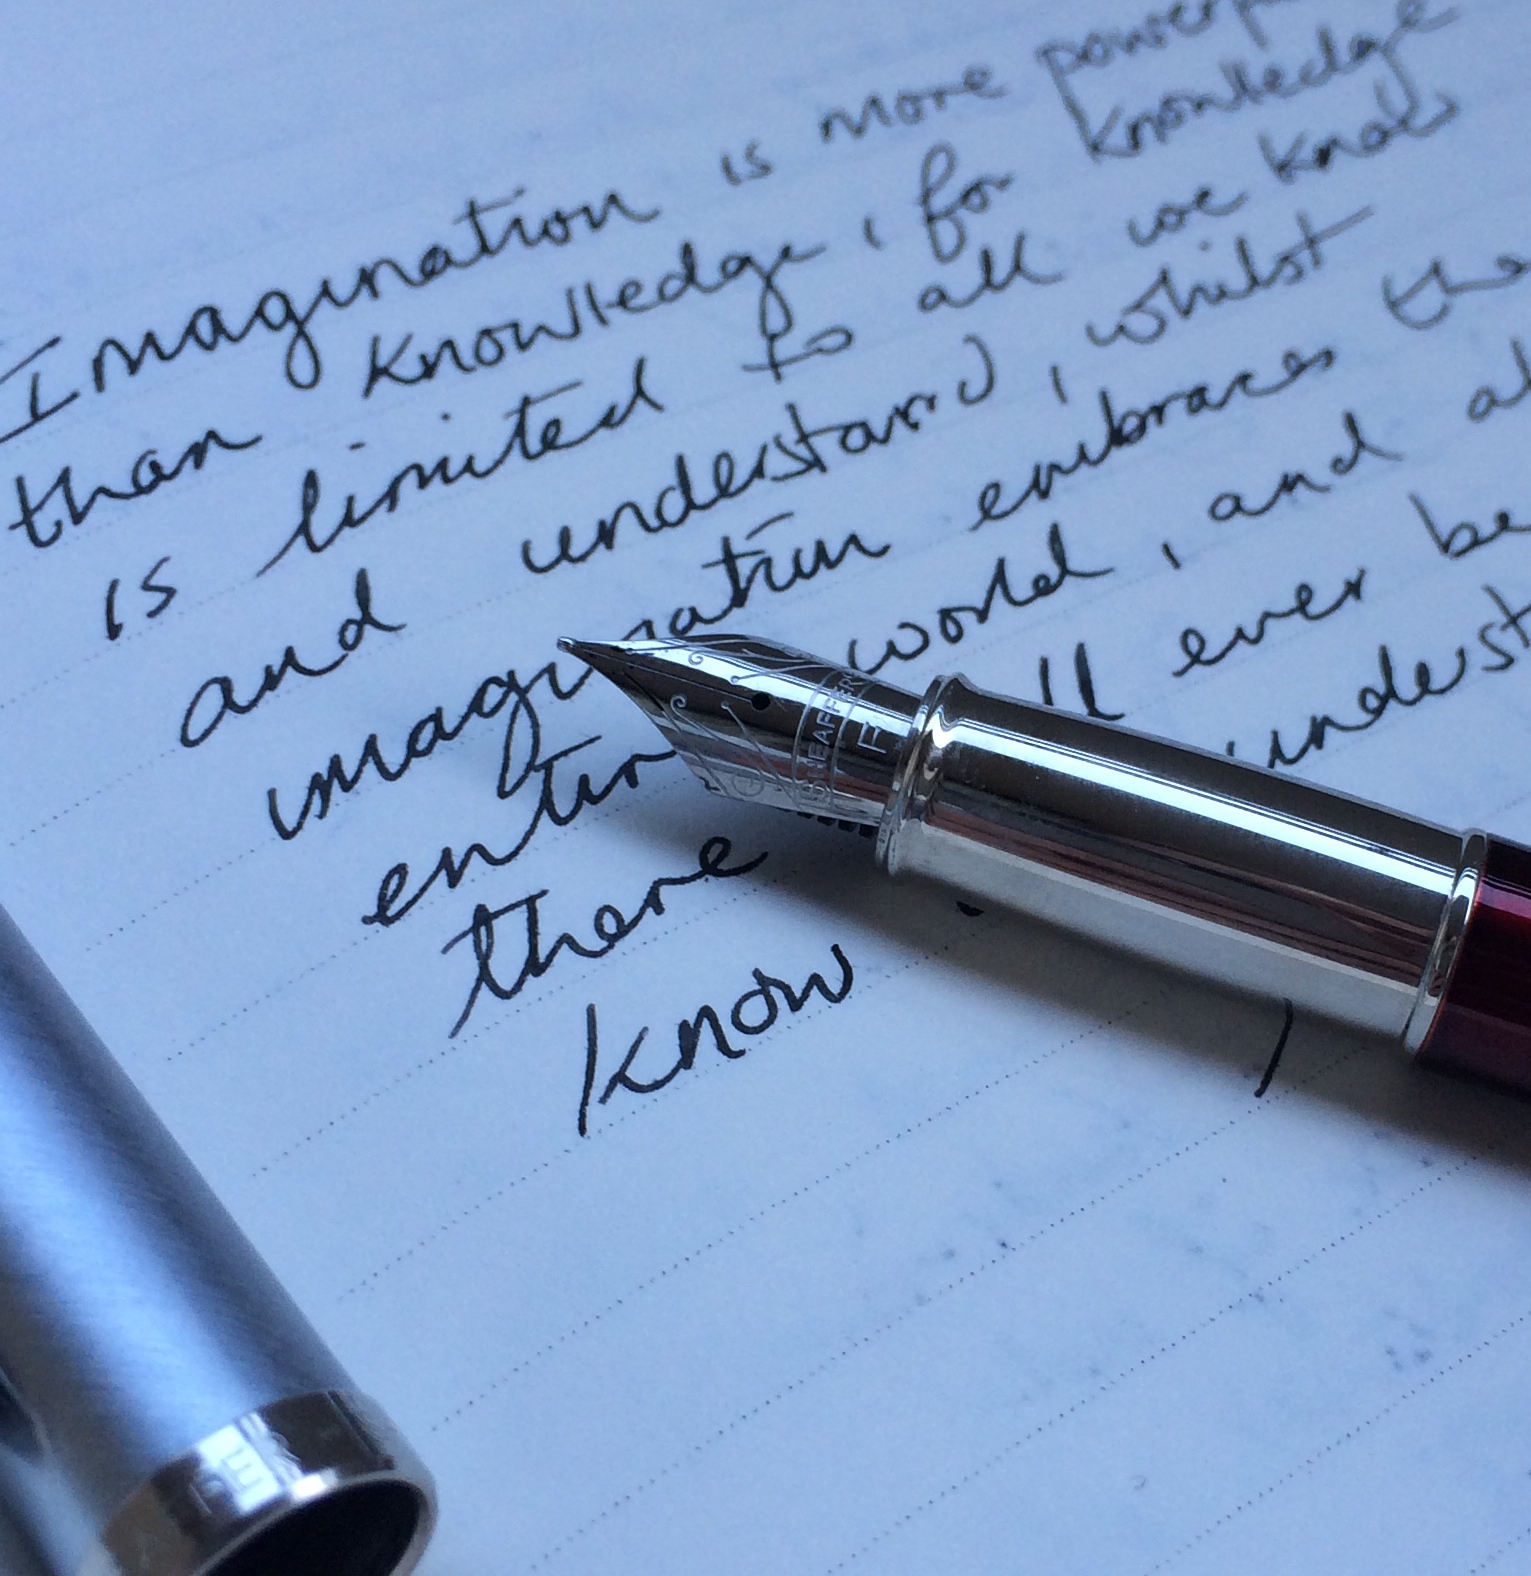 Imagination is more powerf
than knowledge, for knowledge
is limited to all we know
and understand, whilst
imagination embraces the
entire world, and al
there ll ever be
know underst
SHEAFFER
F